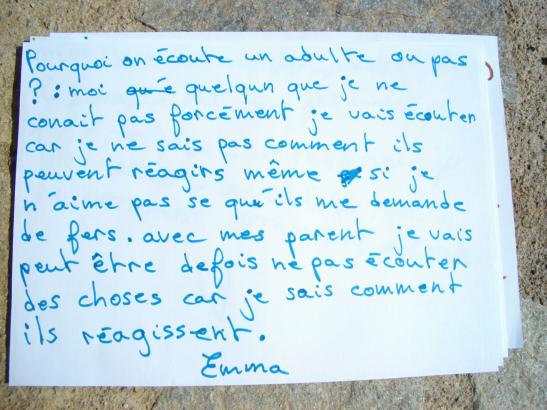 Pourquoi on écoute un adulte ou pas
? : moi qu'é quelqun que je ne
conait pas forcément je vais écouter
car je ne sais pas comment ils
peuvent réagirs même si je
n'aime pas se qu'ils me demande
de fers. avec mes parent je vais
peut être defois ne pas écouter
des choses car je sais comment
ils réagissent.
Emma